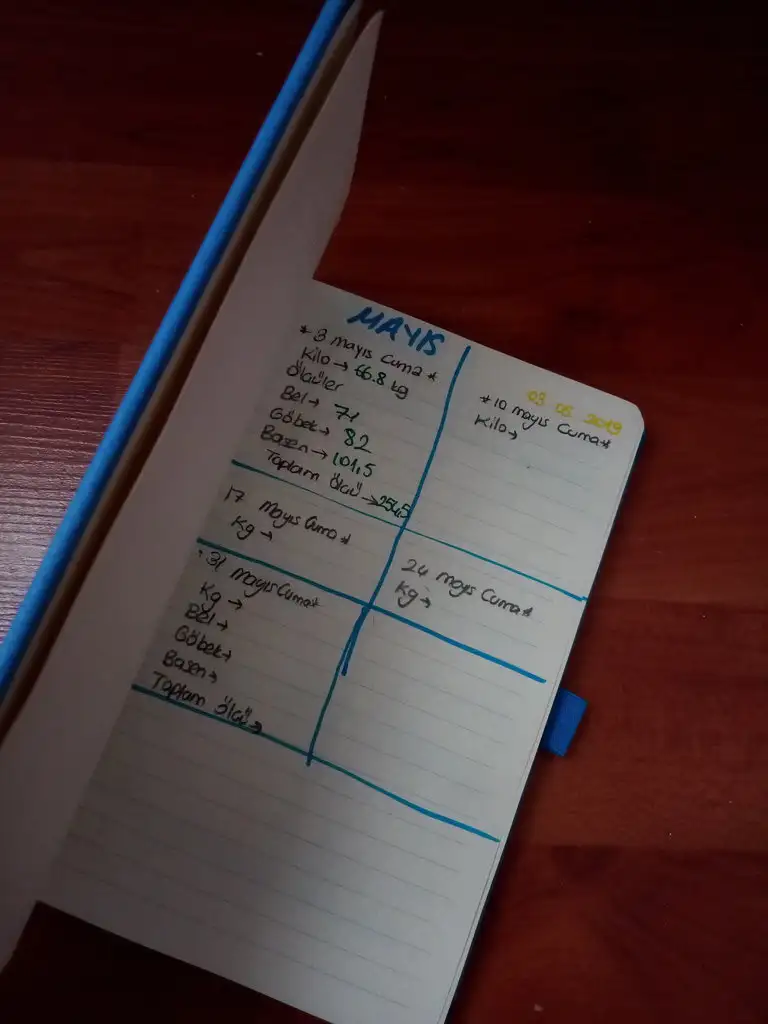 MAYIS
* 3 mayıs Cuma *
Kilo → 66.8 kg
Ölçüler
Bel → 71
Göbek → 82
Basen → 101,5
Toplam ölçü → 254,5
03 05 2019
* 10 mayıs Cuma *
Kilo →
17 mayıs Cuma *
Kg →
24 mayıs Cuma *
Kg →
* 31 mayıs Cuma *
Kg →
Bel →
Göbek →
Basen →
Toplam ölçü →